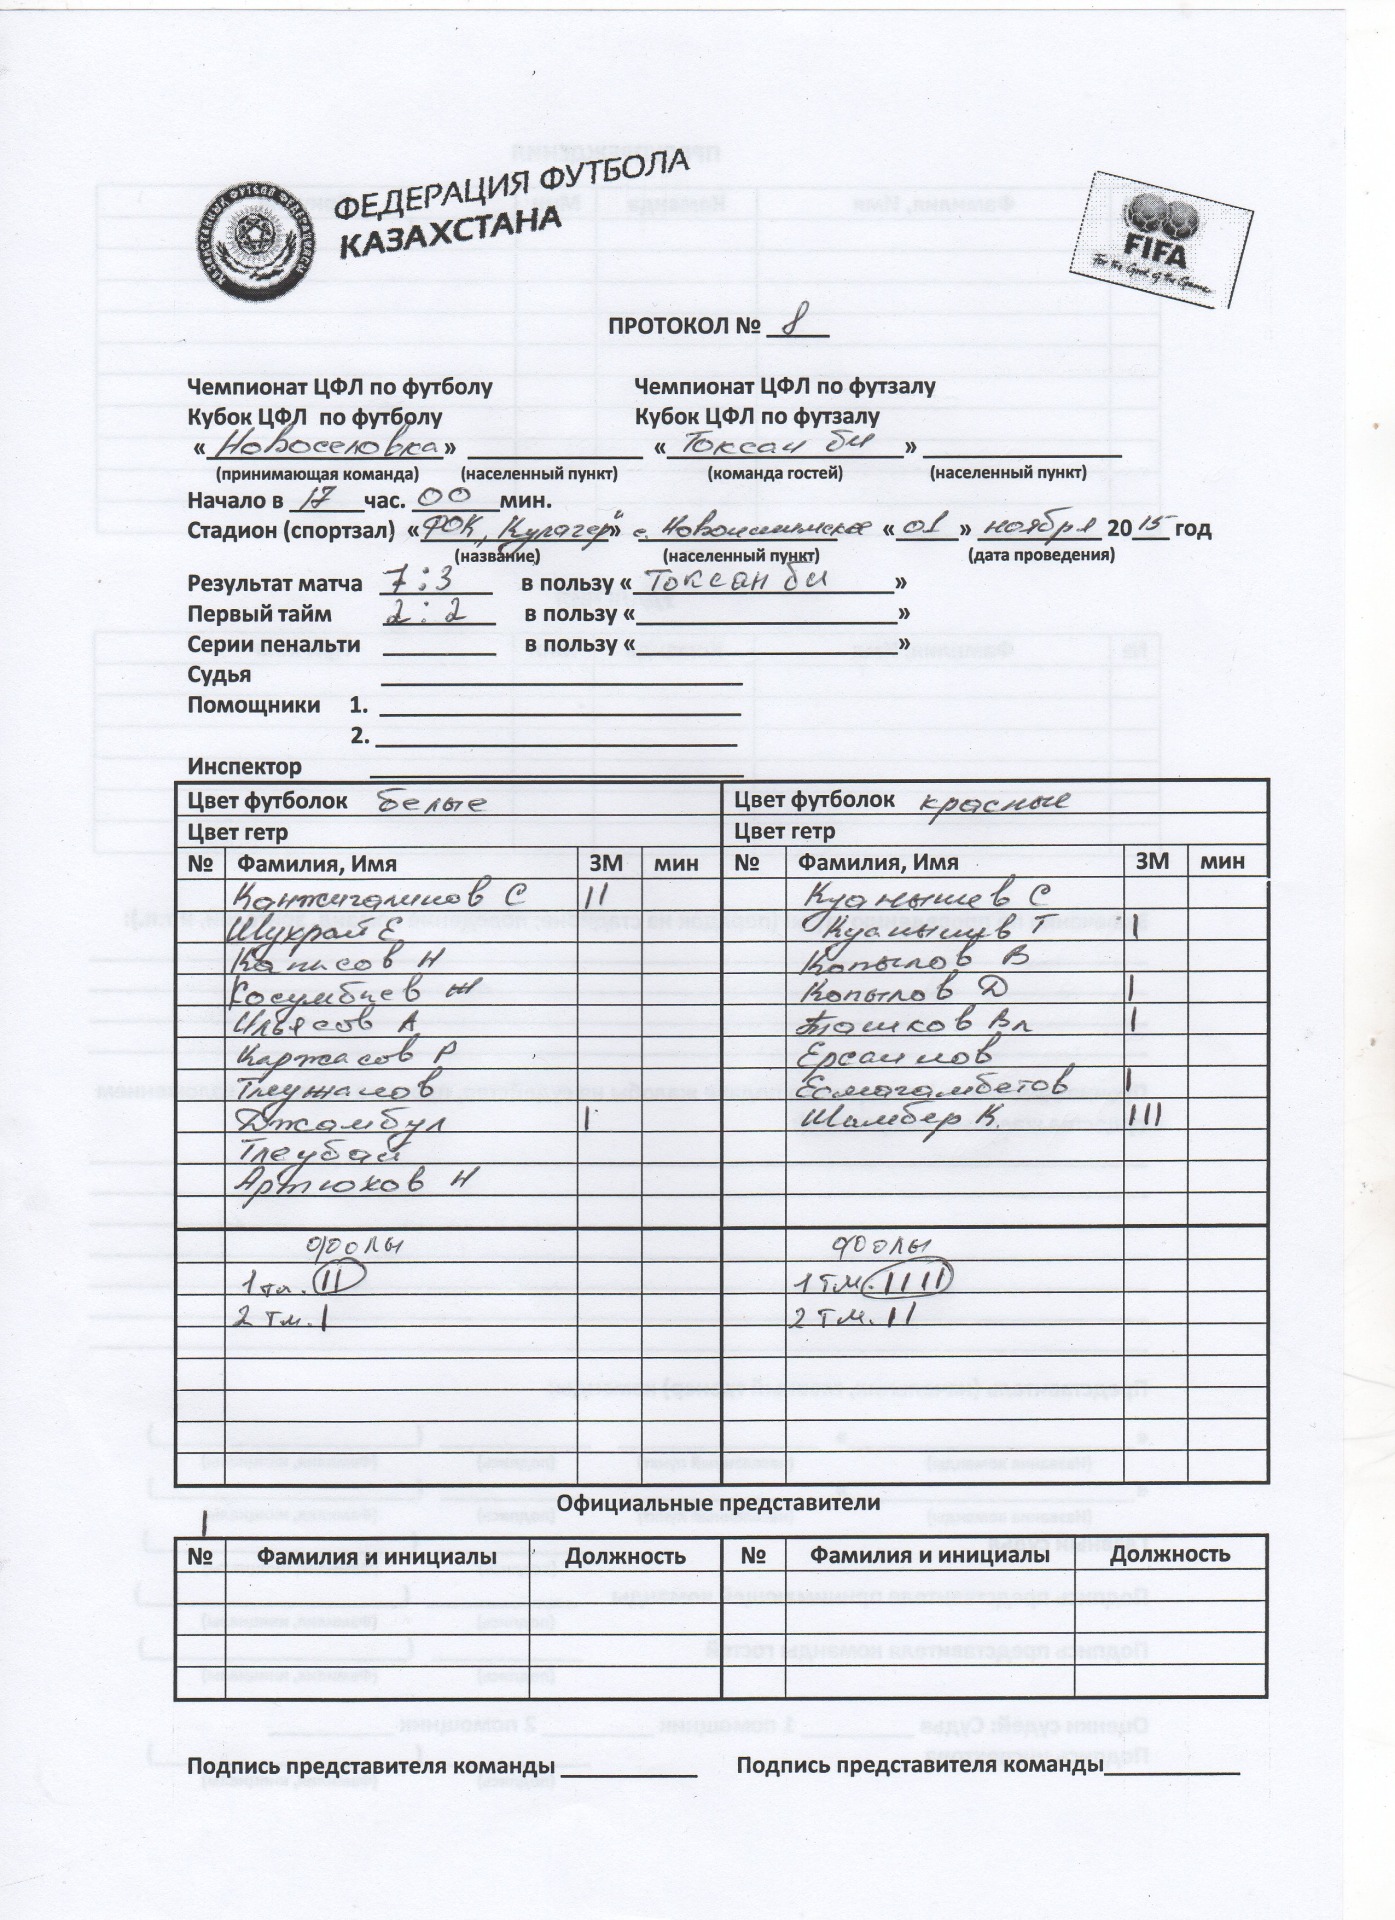 ФЕДЕРАЦИЯ ФУТБОЛА
КАЗАХСТАНА
FIFA
For the Good of the Game
ПРОТОКОЛ № 8
Чемпионат ЦФЛ по футболу Чемпионат ЦФЛ по футзалу
Кубок ЦФЛ по футболу Кубок ЦФЛ по футзалу
«Новоселовка» «Токсан би»
(принимающая команда) (населенный пункт) (команда гостей) (населенный пункт)
Начало в 17 час. 00 мин.
Стадион (спортзал) «ФОК „Кулагер"» с. Новоишимское «01» ноября 2015 год
(название) (населенный пункт) (дата проведения)
Результат матча 7:3 в пользу «Токсан би»
Первый тайм 2:2 в пользу « »
Серии пенальти в пользу « »
Судья
Помощники 1.
2.
Инспектор
Цвет футболок белые Цвет футболок красные
Цвет гетр Цвет гетр
№ Фамилия, Имя ЗМ мин № Фамилия, Имя ЗМ мин
Канжигалинов С II Куанышев С
Шукрат Е Куанышев Т I
Каписов Н Копылов В
Косумбаев Ж Копылов Д I
Ильясов А Ташков Вл I
Каржасов Р Ерсаинов
Тлужанов Есмагамбетов I
Джамбул I Шамбер К. III
Тлеубай
Артюхов Н
фолы фолы
1 тм. II 1 тм. IIII
2 тм. I 2 тм. II
Официальные представители
№ Фамилия и инициалы Должность № Фамилия и инициалы Должность
Подпись представителя команды Подпись представителя команды